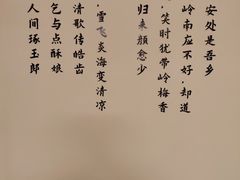 人间琢玉郎
乞与点酥娘
清歌传皓齿
，雪飞炎海变清凉
归来颜愈少
，笑时犹带岭梅香
岭南应不好，却道
安处是吾乡